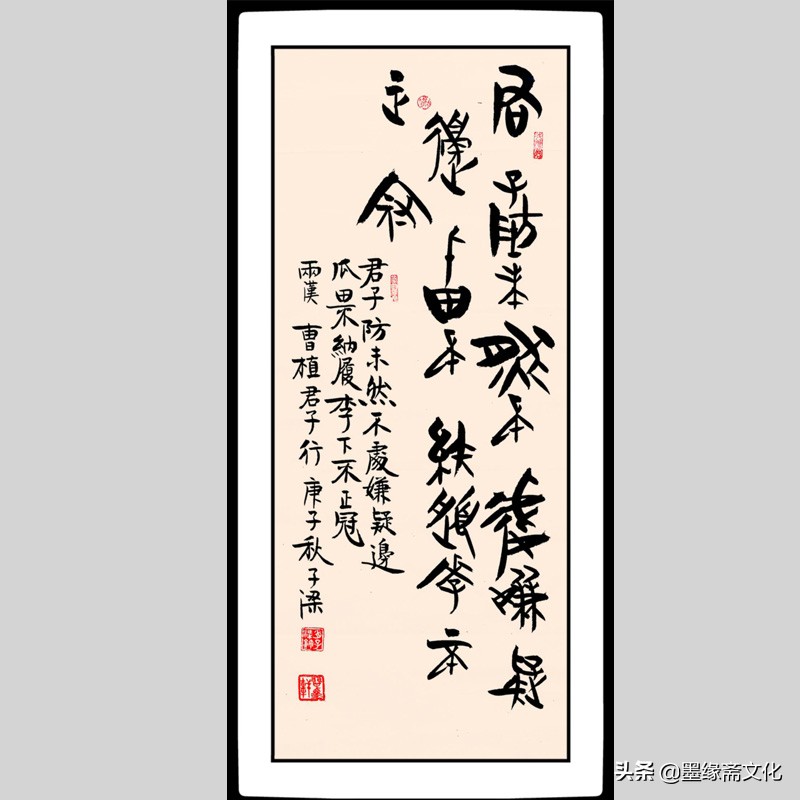 君子防未然不處嫌疑
邊瓜田不納履李下不
正冠
君子防未然不處嫌疑邊
瓜田不納履李下不正冠
兩漢 曹植君子行 庚子秋子梁
头条 @墨缘斋文化